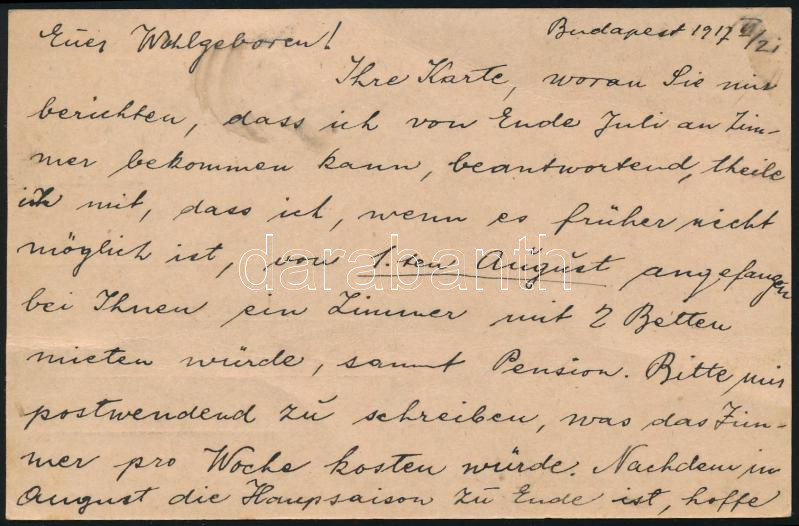 Budapest 1917 VI/21
Euer Wohlgeboren!
Ihre Karte, woran Sie mir
berichten, dass ich von Ende Juli an Zim-
mer bekommen kann, beantwortend, theile
ich mit, dass ich, wenn es früher nicht
möglich ist, von 1.ten August angefangen
darabanth
bei Ihnen ein Zimmer mit 2 Betten
mieten würde, sammt Pension. Bitte mir
postwendend zu schreiben, was das Zim-
mer pro Woche kosten würde. Nachdem im
August die Haupsaison zu Ende ist, hoffe